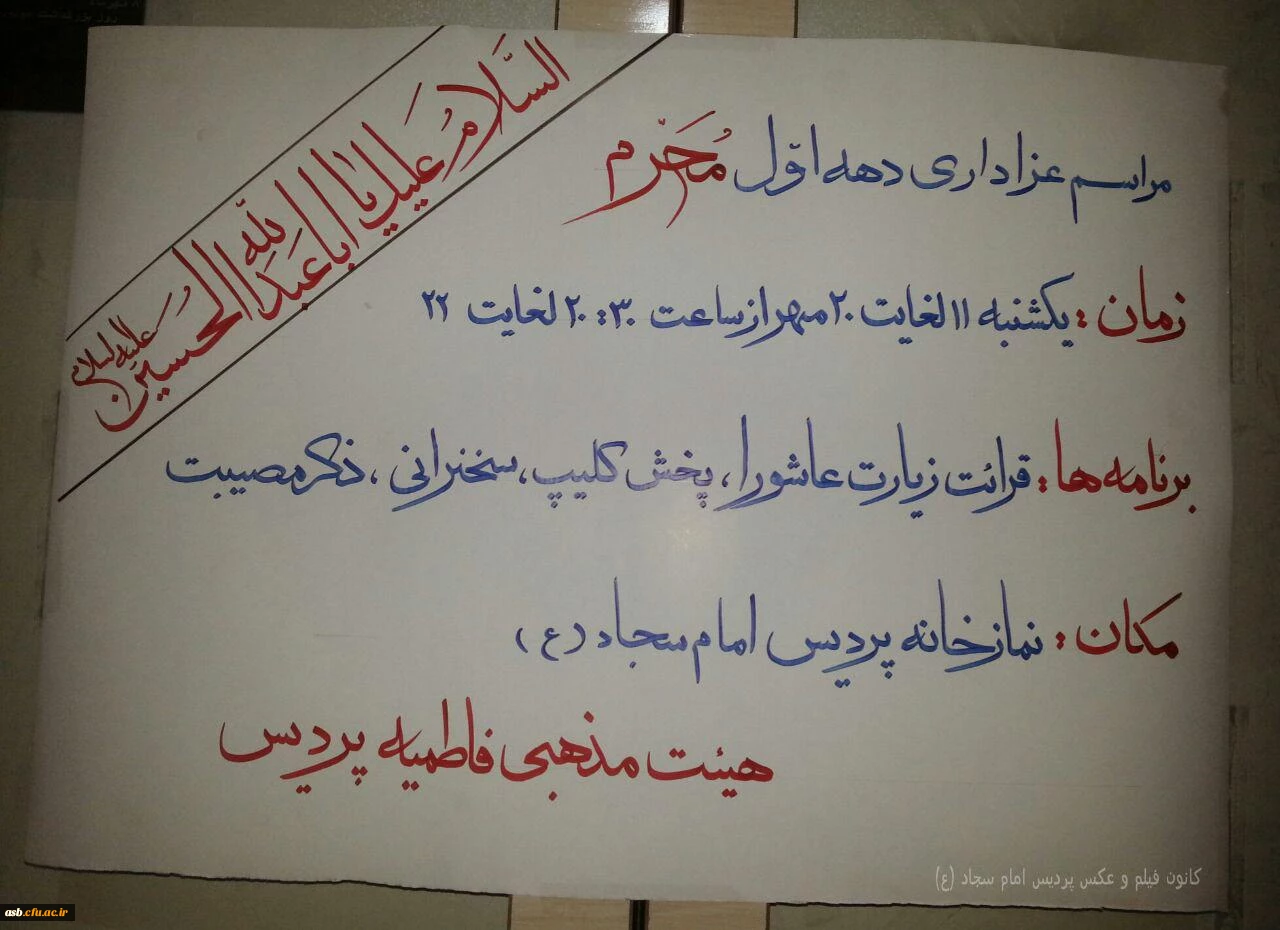 السَّلامُ عَلیک یا اباعَبدالله الحُسین علیه السلام
مراسم عزاداری دهه اوّل مُحَرّم
زمان : یکشنبه ۱۱ لغایت ۲۰ مهر از ساعت ۲۰:۳۰ لغایت ۲۲
برنامه ها : قرائت زیارت عاشورا ، پخش کلیپ ، سخنرانی ، ذکر مصیبت
مکان : نمازخانه پردیس امام سجاد (ع)
هیئت مذهبی فاطمیه پردیس
کانون فیلم و عکس پردیس امام سجاد (ع)
asb.cfu.ac.ir